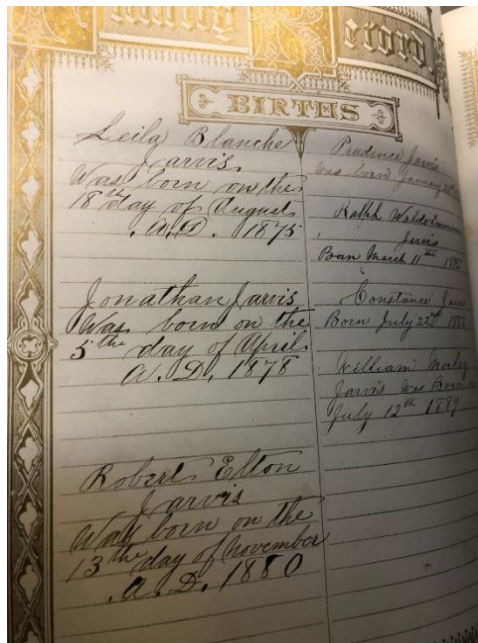 Family Record
BIRTHS
Leila Blanche
Jarvis
Was born on the
18th day of August
A.D. 1875
Jonathan Jarvis
Was born on the
5th day of April
A.D. 1878
Robert Elton
Jarvis
Was born on the
13th day of November
A.D. 1880
Prudence Jarvis
was born January
Ralph
Jarvis
Born March 11th
Constance
Born July 22nd
William
Jarvis Was Born
July 12th 1889